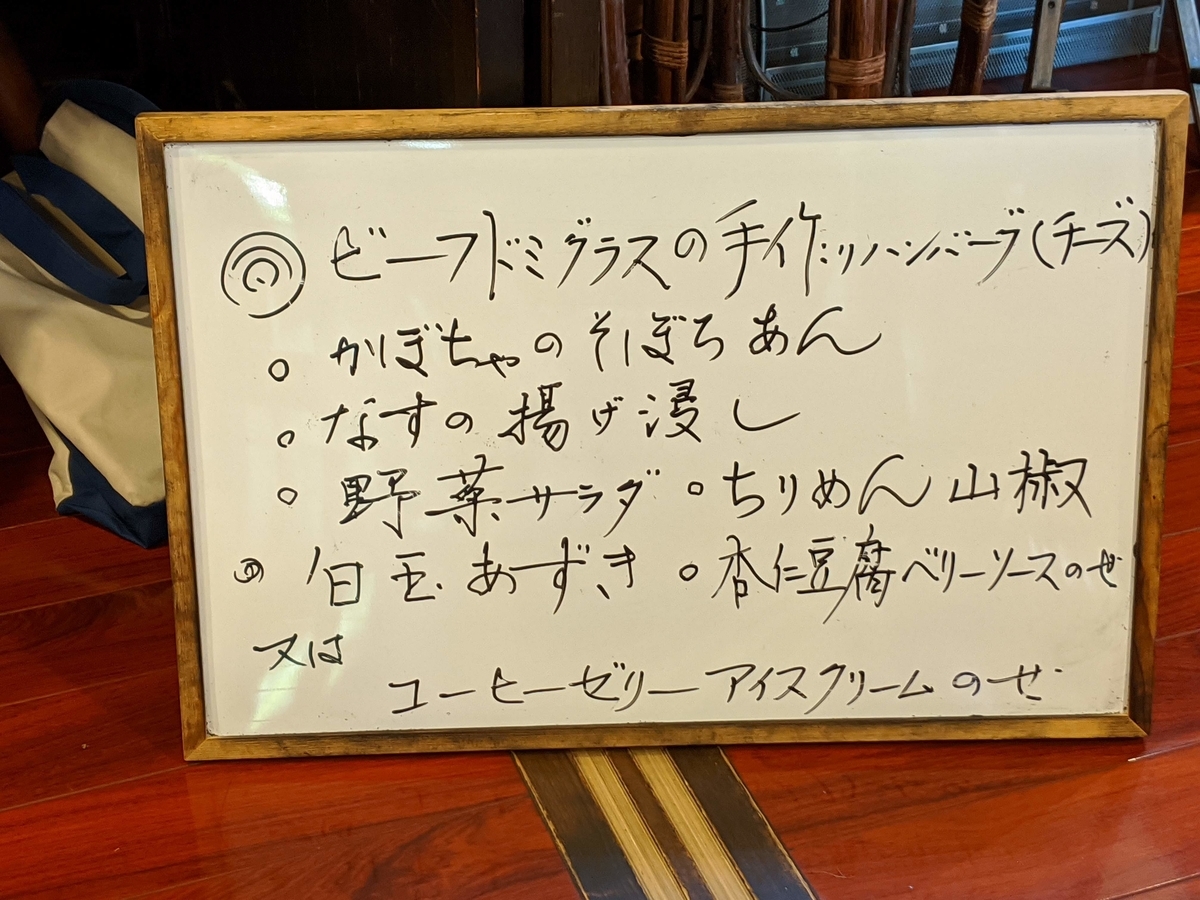 ◎ ビーフドミグラスの手作りハンバーグ(チーズ)
○ かぼちゃのそぼろあん
○ なすの揚げ浸し
○ 野菜サラダ ○ ちりめん山椒
◎ 白玉あずき ○ 杏仁豆腐ベリーソースのせ
又は
コーヒーゼリーアイスクリームのせ